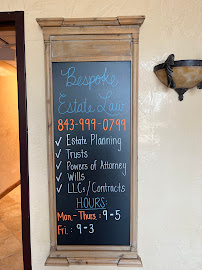 Bespoke
Estate Law
843-999-0799
✓ Estate Planning
✓ Trusts
✓ Powers of Attorney
✓ Wills
✓ LLCs/Contracts
HOURS:
Mon.-Thurs.: 9-5
Fri.: 9-3